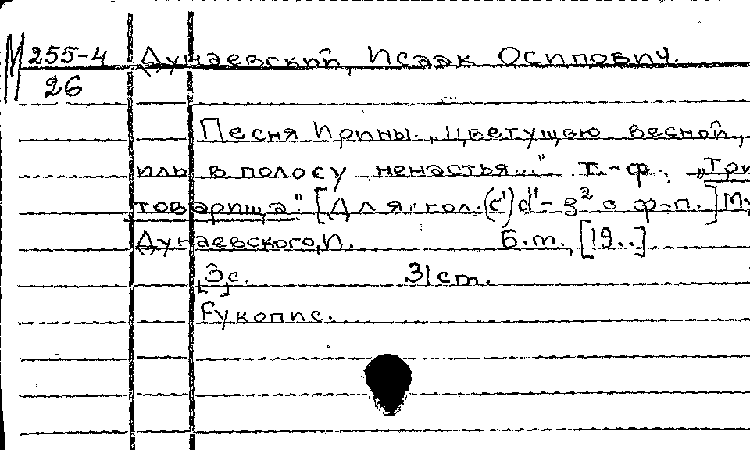 М 255-4 Дунаевский, Исаак Осипович.
26
Песня Ирины. „Цветущею весной,
иль в полосу ненастья..." т.-ф. „Три
товарища". [Для гол. (c') d'' - g² с ф.-п.] Му
Дунаевского, И. Б.m., [19..]
3с. 31 cm.
Рукопис.